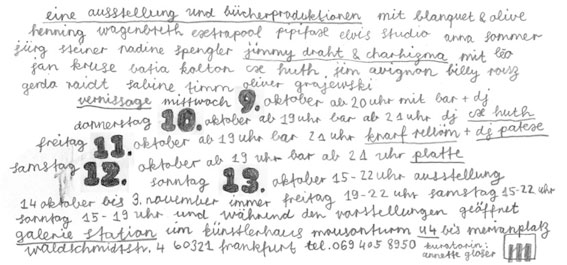 eine ausstellung und bücherproduktionen mit blanquet & olive
henning wagenbreth extrapool pipifax elvis studio anna sommer
jürg steiner nadine spengler jimmy draht & charhizma mit léo
jan kruse batia kolton cx huth, jim avignon billy rouz
gerda raidt sabine timm oliver grajewski
vernissage mittwoch 9. oktober ab 20 uhr mit bar + dj
donnerstag 10. oktober ab 19 uhr bar ab 21 uhr dj cx huth
freitag 11. oktober ab 19 uhr bar 21 uhr knarf rellöm + dj patexe
samstag 12. oktober ab 19 uhr bar ab 21 uhr platte
sonntag 13. oktober 15-22 uhr ausstellung
14 oktober bis 3. november immer freitag 19-22 uhr samstag 15-22 uhr
sonntag 15-19 uhr und während den vorstellungen geöffnet
galerie station im künstlerhaus mousonturm u4 bis merianplatz
waldschmidtstr. 4 60321 frankfurt tel. 069 405 8950 kuratorin:
annette gloser